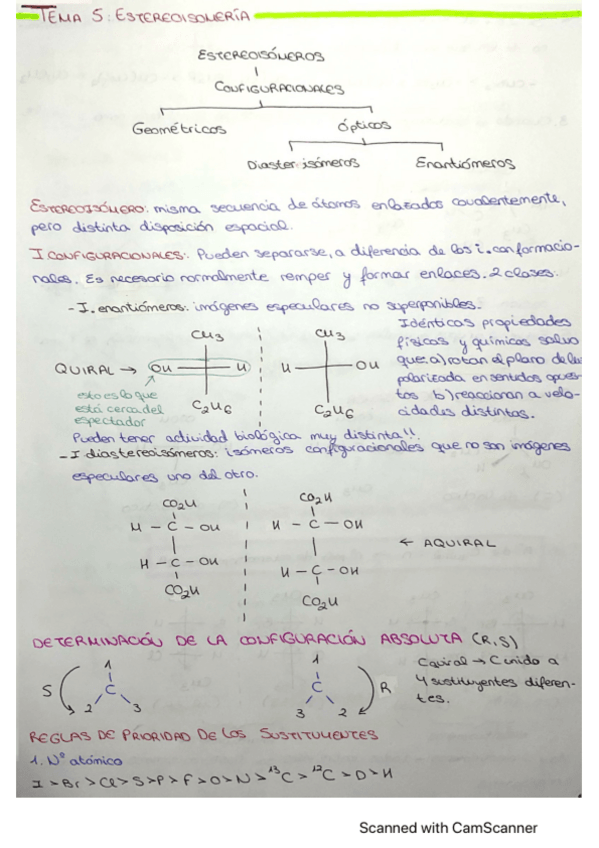 TEMA 5: ESTEREOISOMERÍA
ESTEREOISÓMEROS
CONFIGURACIONALES
Geométricos
Ópticos
Diasterisómeros
Enantiómeros
ESTEREOISÓMERO: misma secuencia de átomos enlazados covalentemente,
pero distinta disposición espacial.
I CONFIGURACIONALES: Pueden separarse, a diferencia de los i. conformacio-
nales. Es necesario normalmente romper y formar enlaces. 2 clases:
- I. enantiómeros: imágenes especulares no superponibles.
CH3
CH3
QUIRAL → OH
H
H
OH
C2H6
C2H6
esto es lo que
está cerca del
espectador
Idénticas propiedades
físicas y químicas salvo
que: a) rotan el plano de luz
polarizada en sentidos opues-
tos b) reaccionan a velo-
cidades distintas.
Pueden tener actividad biológica muy distinta!!
- I diastereoisómeros: isómeros configuracionales que no son imágenes
especulares uno del otro.
CO2H
CO2H
H - C - OH
H - C - OH
← AQUIRAL
H - C - OH
H - C - OH
CO2H
CO2H
DETERMINACIÓN DE LA CONFIGURACIÓN ABSOLUTA (R,S)
1
S
C
2
3
1
R
C
3
2
C quiral → C unido a
4 sustituyentes diferen-
tes.
REGLAS DE PRIORIDAD DE LOS SUSTITUYENTES
1. Nº atómico
I > Br > Cl > S > P > F > O > N > ¹³C > ¹²C > D > H
Scanned with CamScanner